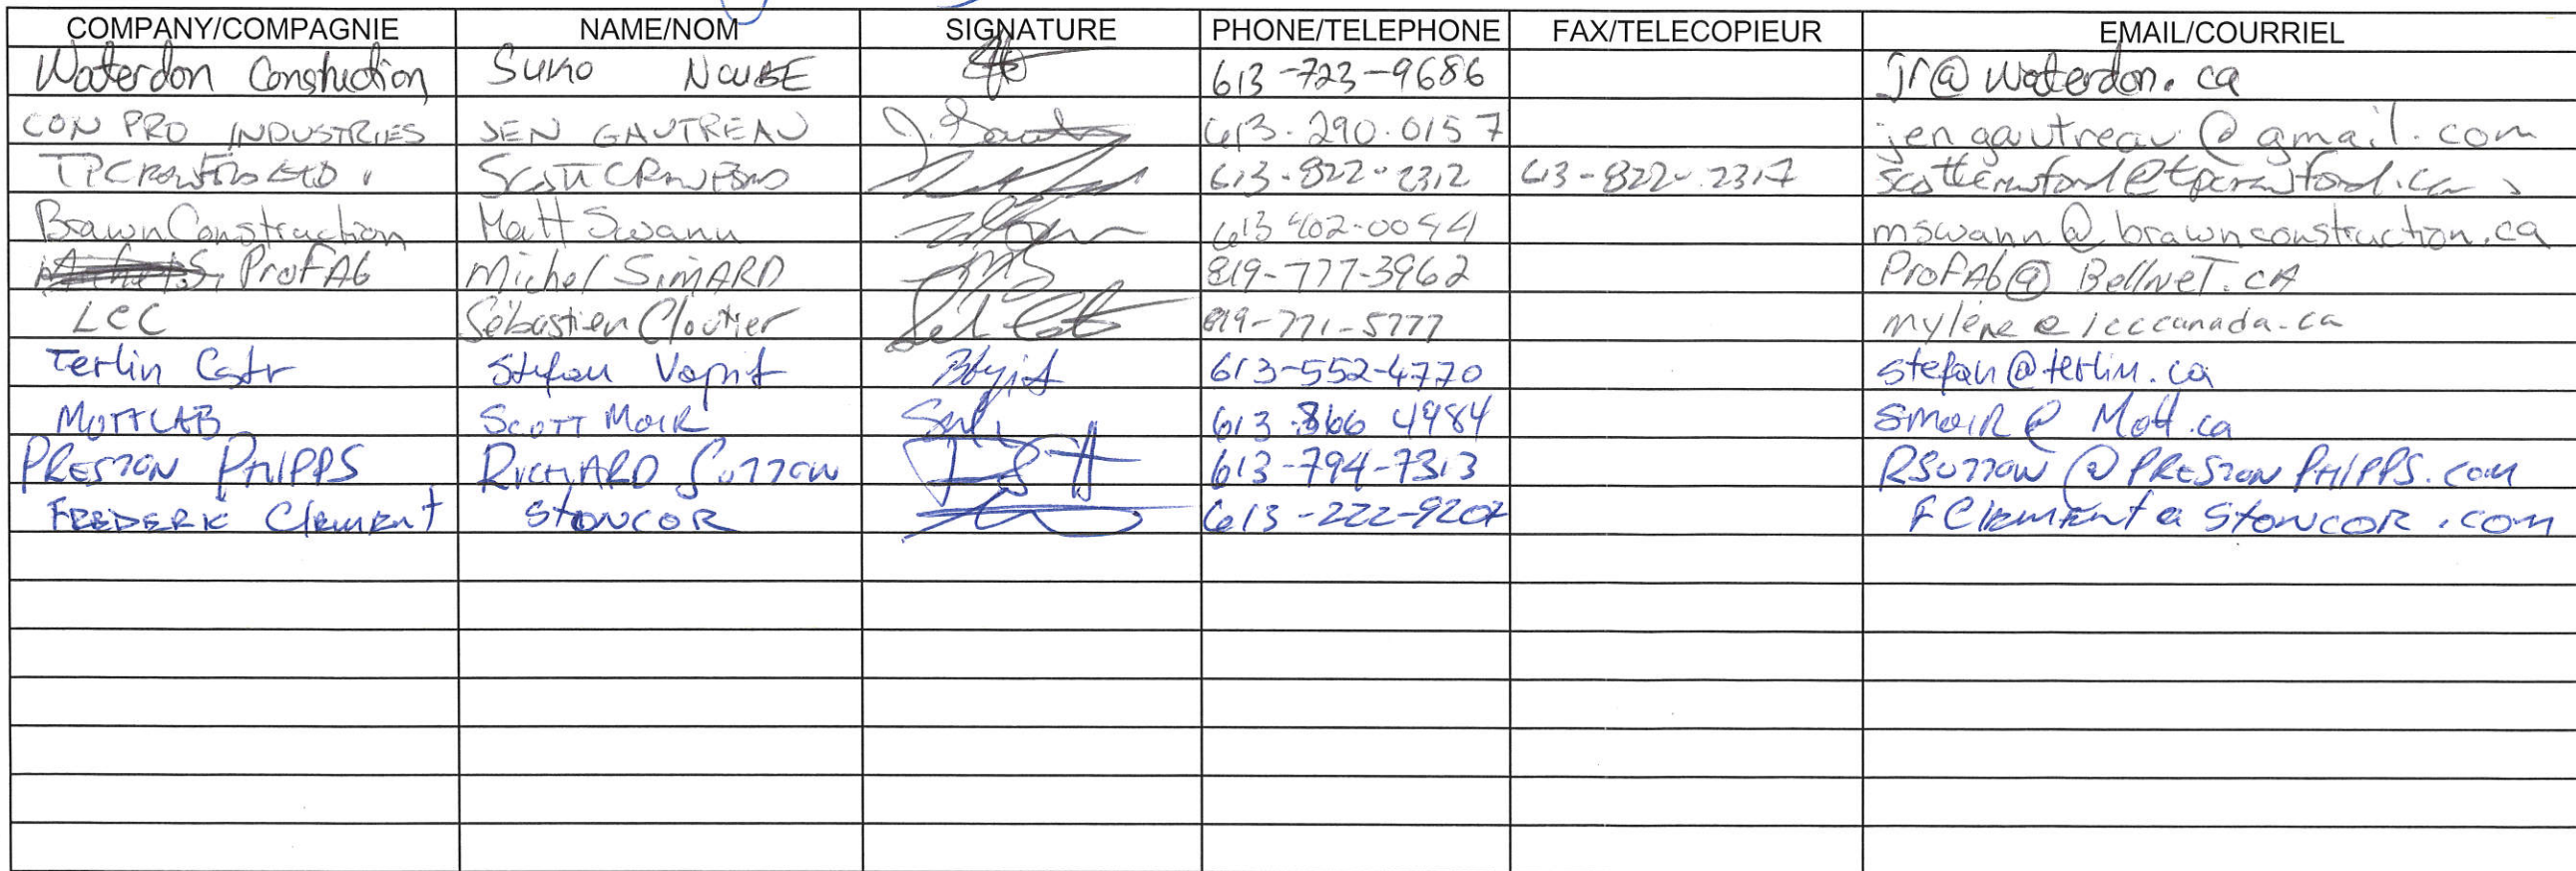 COMPANY/COMPAGNIE NAME/NOM SIGNATURE PHONE/TELEPHONE FAX/TELECOPIEUR EMAIL/COURRIEL
Waterdon Construction Suko Ncube 613-723-9686 jr@waterdon.ca
CON PRO INDUSTRIES JEN GAUTREAU 613.290.0157 jengautreau@gmail.com
TPCrawford LTD. Scott Crawford 613-822-2312 613-822-2317 scottcrawford@tpcrawford.ca
Brawn Construction Matt Swann 613 402-0054 mswann@brawnconstruction.ca
ProFAb Michel SiMARD MS 819-777-3962 ProFAb@BellneT.cA
Sébastien Cloutier 819-771-5777 mylène@icccanada.ca
Terlin Cstr Stefan 613-552-4770 stefan@terlin.ca
MOTTLAB SCOTT MOIR 613.866 4984 smoiR@Mott.ca
PRESTON PHIPPS RICHARD SUTTON 613-794-7313 RSUTTON@PRESTONPHIPPS.com
FREDERIK Clement StONCOR 613-222-9207 FClement@StONCOR.com